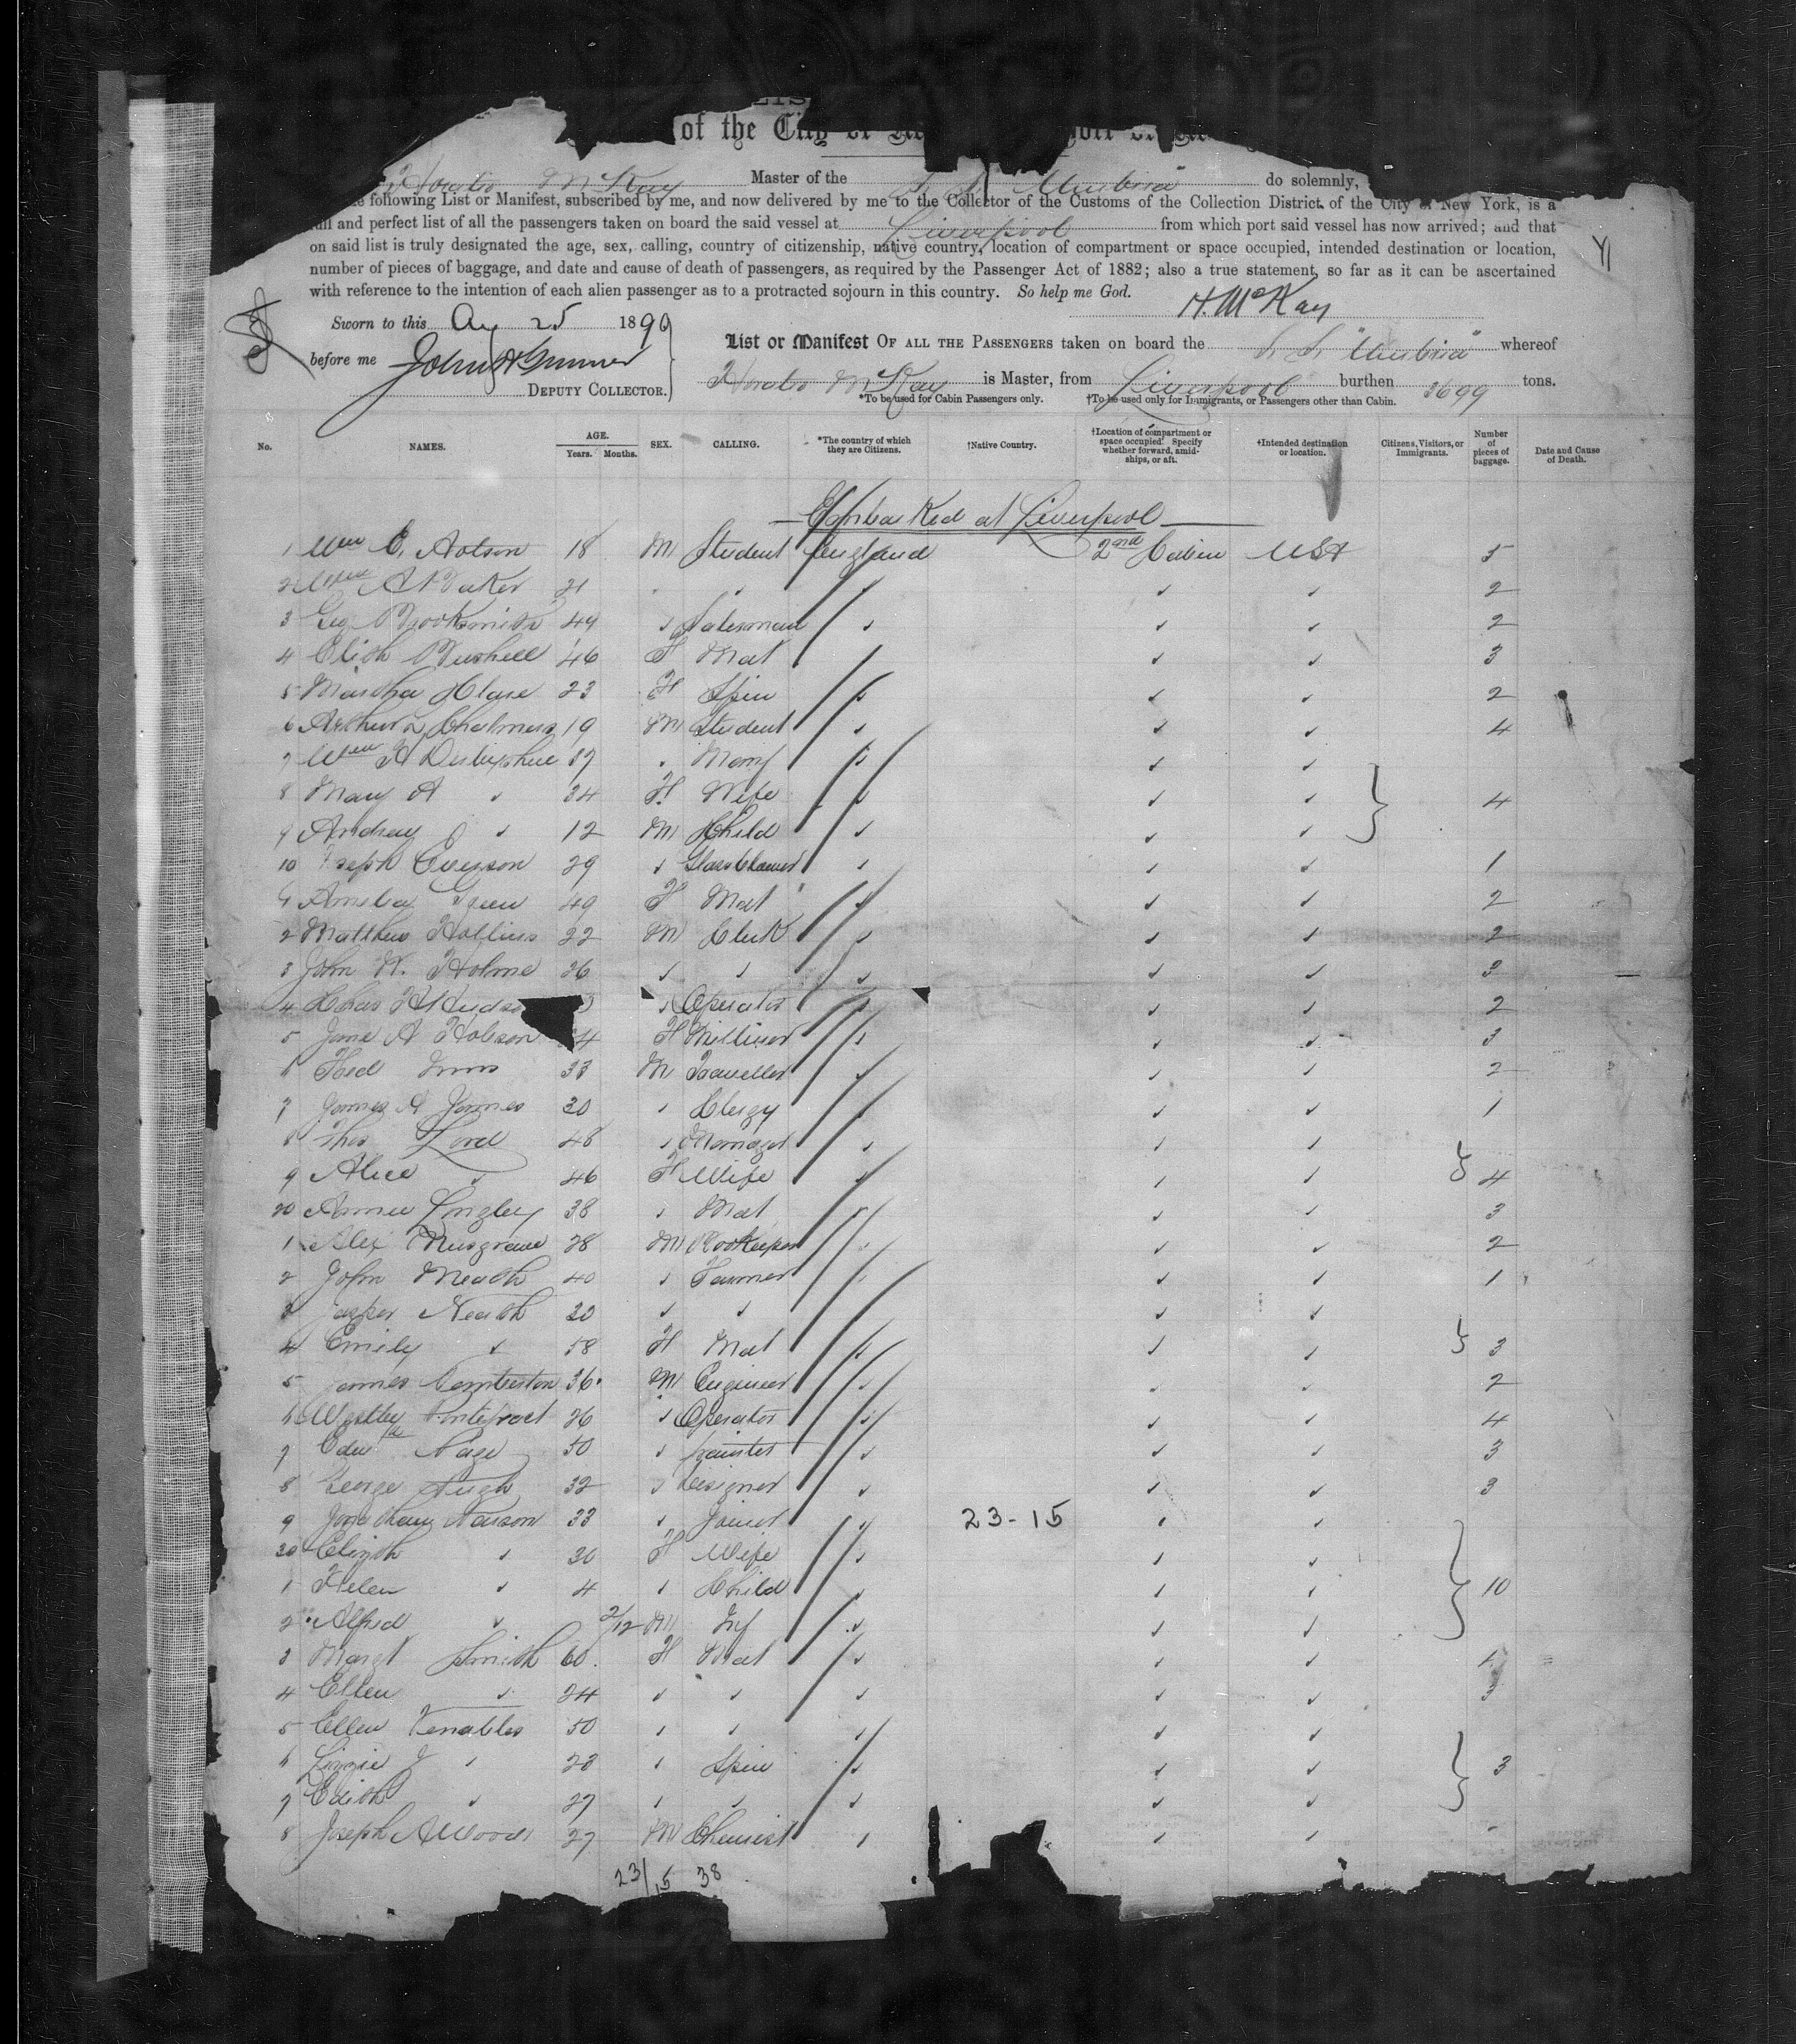 of the City of
Horatio McKay Master of the S. S. "Umbria" do solemnly,
following List or Manifest, subscribed by me, and now delivered by me to the Collector of the Customs of the Collection District of the City of New York, is a
full and perfect list of all the passengers taken on board the said vessel at Liverpool from which port said vessel has now arrived; and that
on said list is truly designated the age, sex, calling, country of citizenship, native country, location of compartment or space occupied, intended destination or location,
number of pieces of baggage, and date and cause of death of passengers, as required by the Passenger Act of 1882; also a true statement, so far as it can be ascertained
with reference to the intention of each alien passenger as to a protracted sojourn in this country. So help me God.
H. McKay
Sworn to this Aug 25 1890
before me John
DEPUTY COLLECTOR.
List or Manifest OF ALL THE PASSENGERS taken on board the S. S. "Umbria" whereof
Horatio McKay is Master, from Liverpool burthen 3699 tons.
*To be used for Cabin Passengers only. †To be used only for Immigrants, or Passengers other than Cabin.
No. NAMES. AGE. Years. Months. SEX. CALLING. *The country of which they are Citizens. †Native Country. †Location of compartment or space occupied. Specify whether forward, amidships, or aft. †Intended destination or location. Citizens, Visitors, or Immigrants. Number of pieces of baggage. Date and Cause of Death.
Embarked at Liverpool
1 Wm C. 18 M Student England 2nd Cabin USA 5
2 Wm A Baker 21 2
3 Geo Brooksmith 49 Salesman 2
4 Elizth Bushell 46 F Mat 3
5 Martha Clare 23 F Spin 2
6 Arthur Chalmers 19 M Student 4
7 Wm H Derbyshire 37 Manf
8 Mary A 34 F Wife 4
9 12 M Child
10 Joseph 29 1
Amelia Green 49 F Mat 2
2 Matthew Hollins 22 M Clerk 2
3 John W. Holme 26 3
4 Chas Operator 2
5 Jane A Hobson 4 F Milliner 3
6 Fred 33 M Traveller 2
7 James A James 30 Clergy 1
8 Thos Lord 48 Manager
9 Alice 46 F Wife 4
20 Annie Langley 38 Mat 3
1 Alex Musgrave 28 M Bookeeper 2
2 John Neath 40 Farmer 1
3 Jasper Neath 30
4 Emily 58 F Mat 3
5 James Pemberton 36 M Engineer 2
6 Westley Pontefract 26 Operator 4
7 Edwd Page 50 painter 3
8 George Pugh 32 Designer 3
9 Jonathan 33 Joiner 23-15
30 Elizth 30 F Wife
1 Helen 4 Child 10
2 Alfred 2/12 M Inf
3 Margt Smith 60 F Mat
4 Ellen 24 3
5 Ellen Venables 50
6 Lizzie J 23 Spin 3
7 Edith 27
8 Joseph A Woods 27 M Chemist
23/15 38